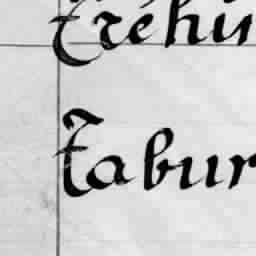 Tréhu
Tabur